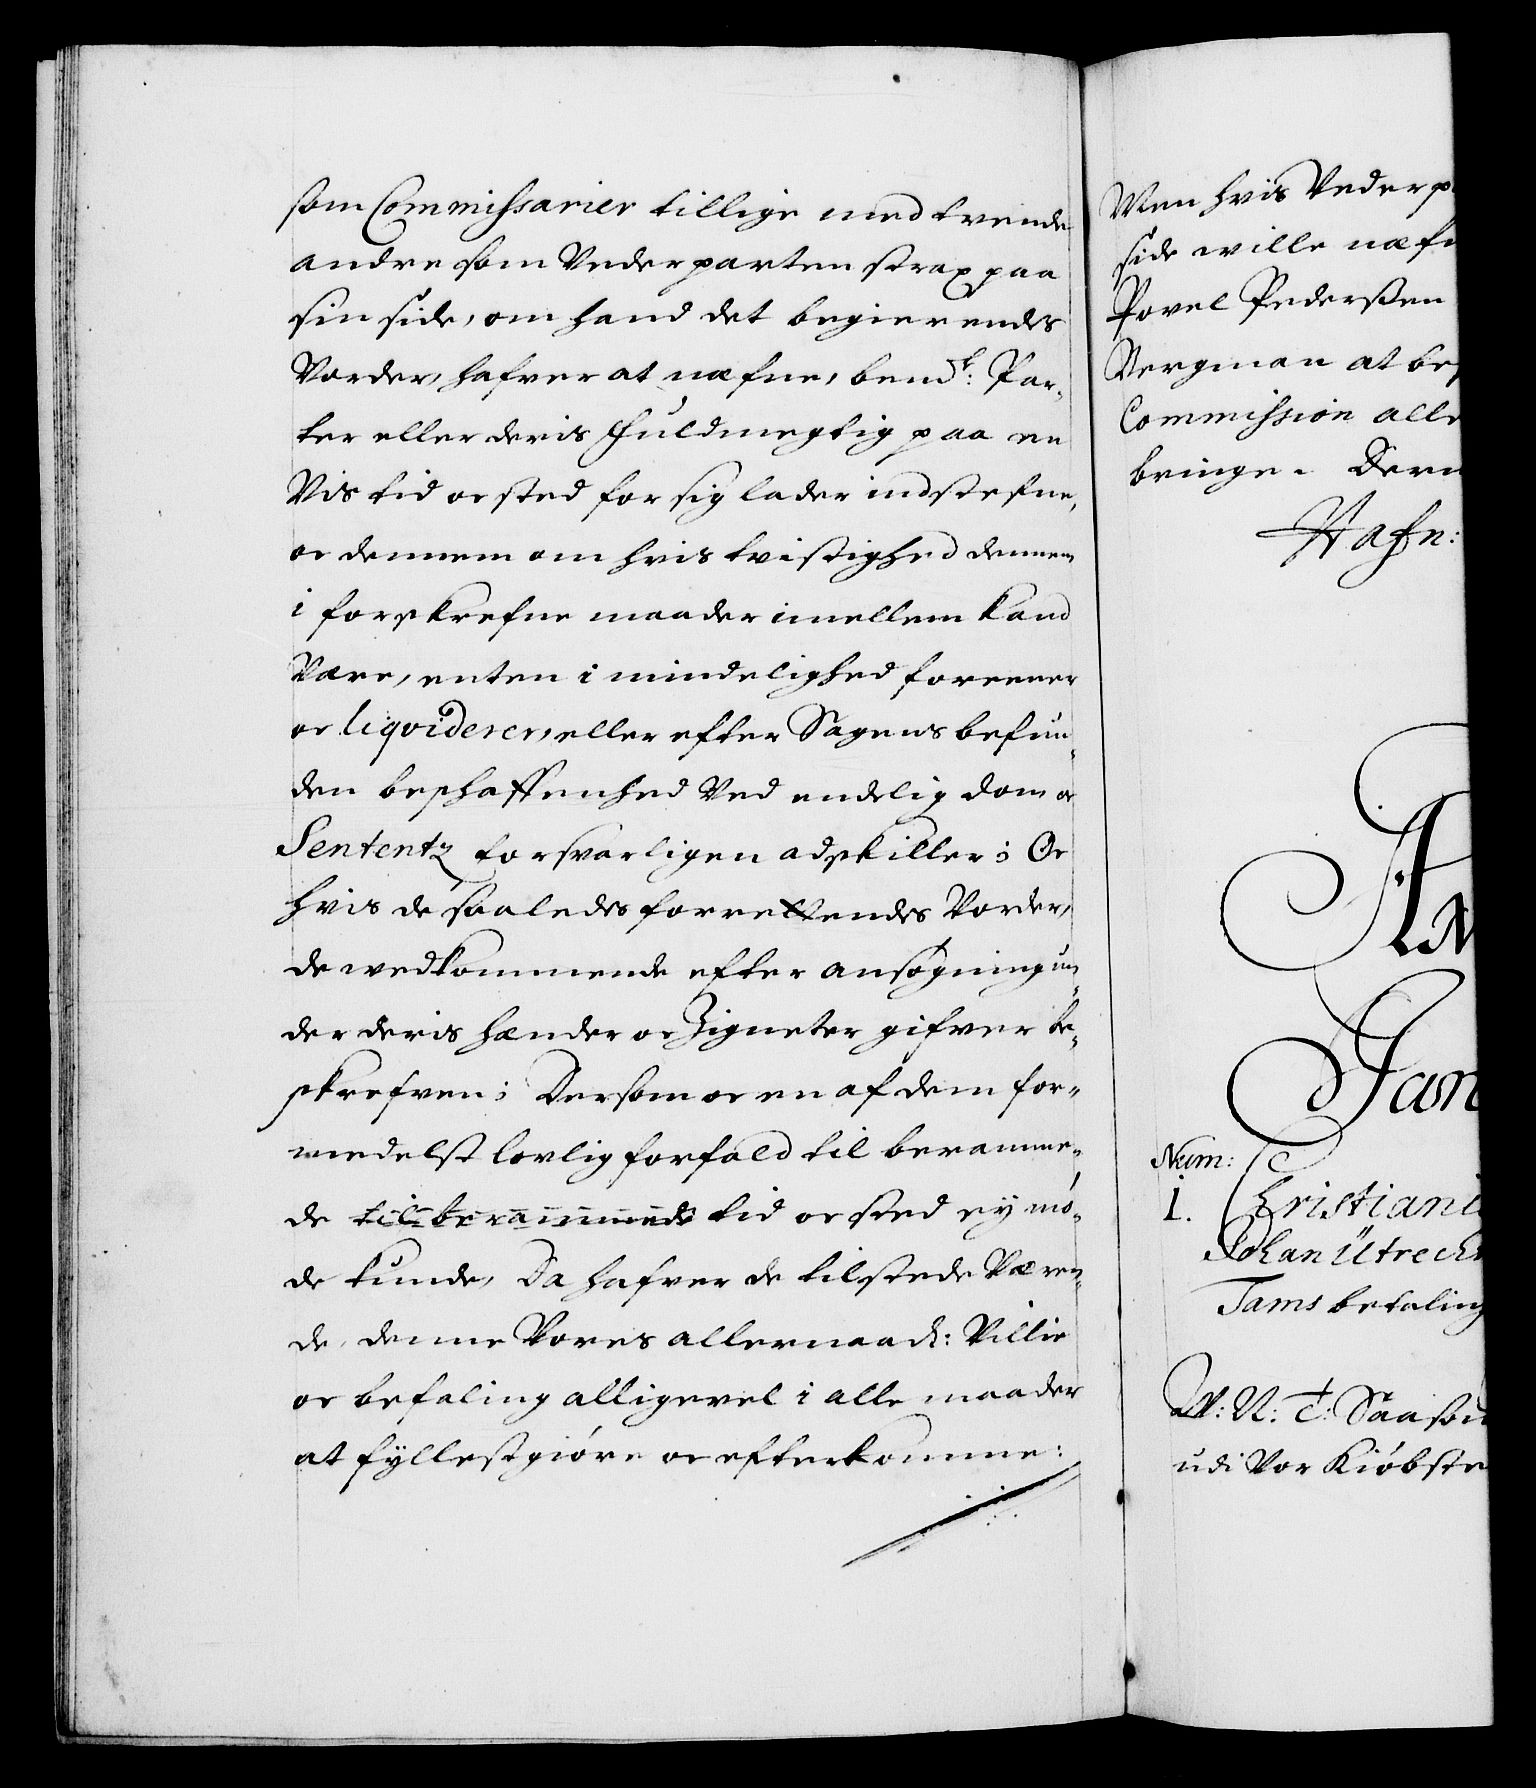 som Commissarier tillige med tvende
andre som Vederparten strax paa
sin side, om hand det begierendes
Vorder, hafver at næfne, bemte: Par-
ter eller deris fuldmegtig paa en
Vis tid oc sted for sig lader indstefne,
oc dennem om hvis tvistighed dennem
i forskrefne maader imellem kand
Være, enten i mindelighed foreener
oc liqviderer, eller efter Sagens befun-
den beschaffenhed Ved endelig dom oc
Sententz forsvarligen adskiller; Oc
hvis de saaledes forrettendes Vorder,
de vedkommende efter ansøgning un-
der deris hænder oc Zigneter gifver be-
skrefven; Dersom oc en af dem for-
medelst lovlig forfald til beramme-
de til berammede tid oc sted ey mø-
de kunde, Da hafver de tilstede Væren-
de, denne Vores allernaad: Villie
oc befaling alligevel i alle maader
at fyllestgiøre oc efterkomme:
Men hvis Vederp
side wille næfn
Povel Pederssen
Bergman at be
Commission alle
bringe. Derm
Hafn:
An
Jan
Num:
1. Christiani
Johan Utrech
Tams betaling
W: N: T: Saasom
udi Vor Kiøbste